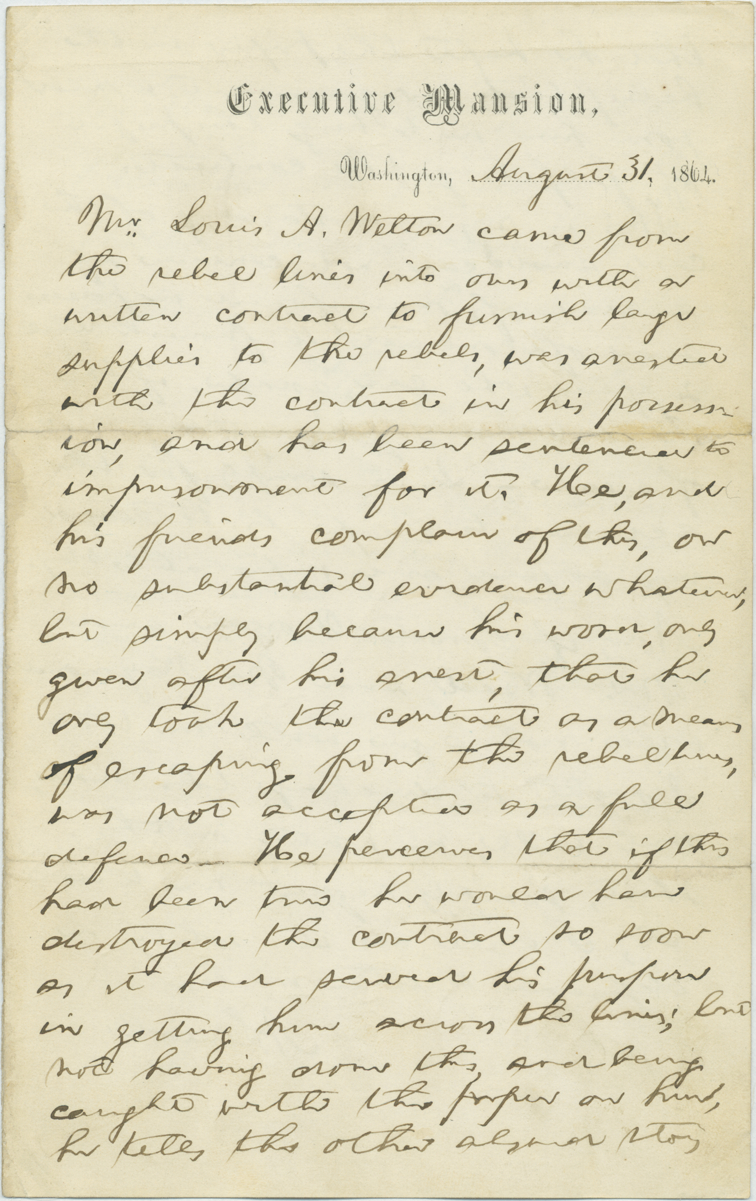 Executive Mansion,
Washington, August 31, 1864.
Mr. Louis A. Welton came from
the rebel lines into ours with a
written contract to furnish large
supplies to the rebels, was arrested
with the contract in his possess-
ion, and has been sentenced to
imprisonment for it. He, and
his friends complain of this, on
no substantial evidence whatever,
but simply because his word, only
given after his arrest, that he
only took the contract as a means
of escaping from the rebel lines,
was not accepted as a full
defence— He perceives that if this
had been true he would have
destroyed the contract so soon
as it had served his purpose
in getting him across the lines; but
not having done this, and being
caught with the paper on him,
he tells this other absurd story